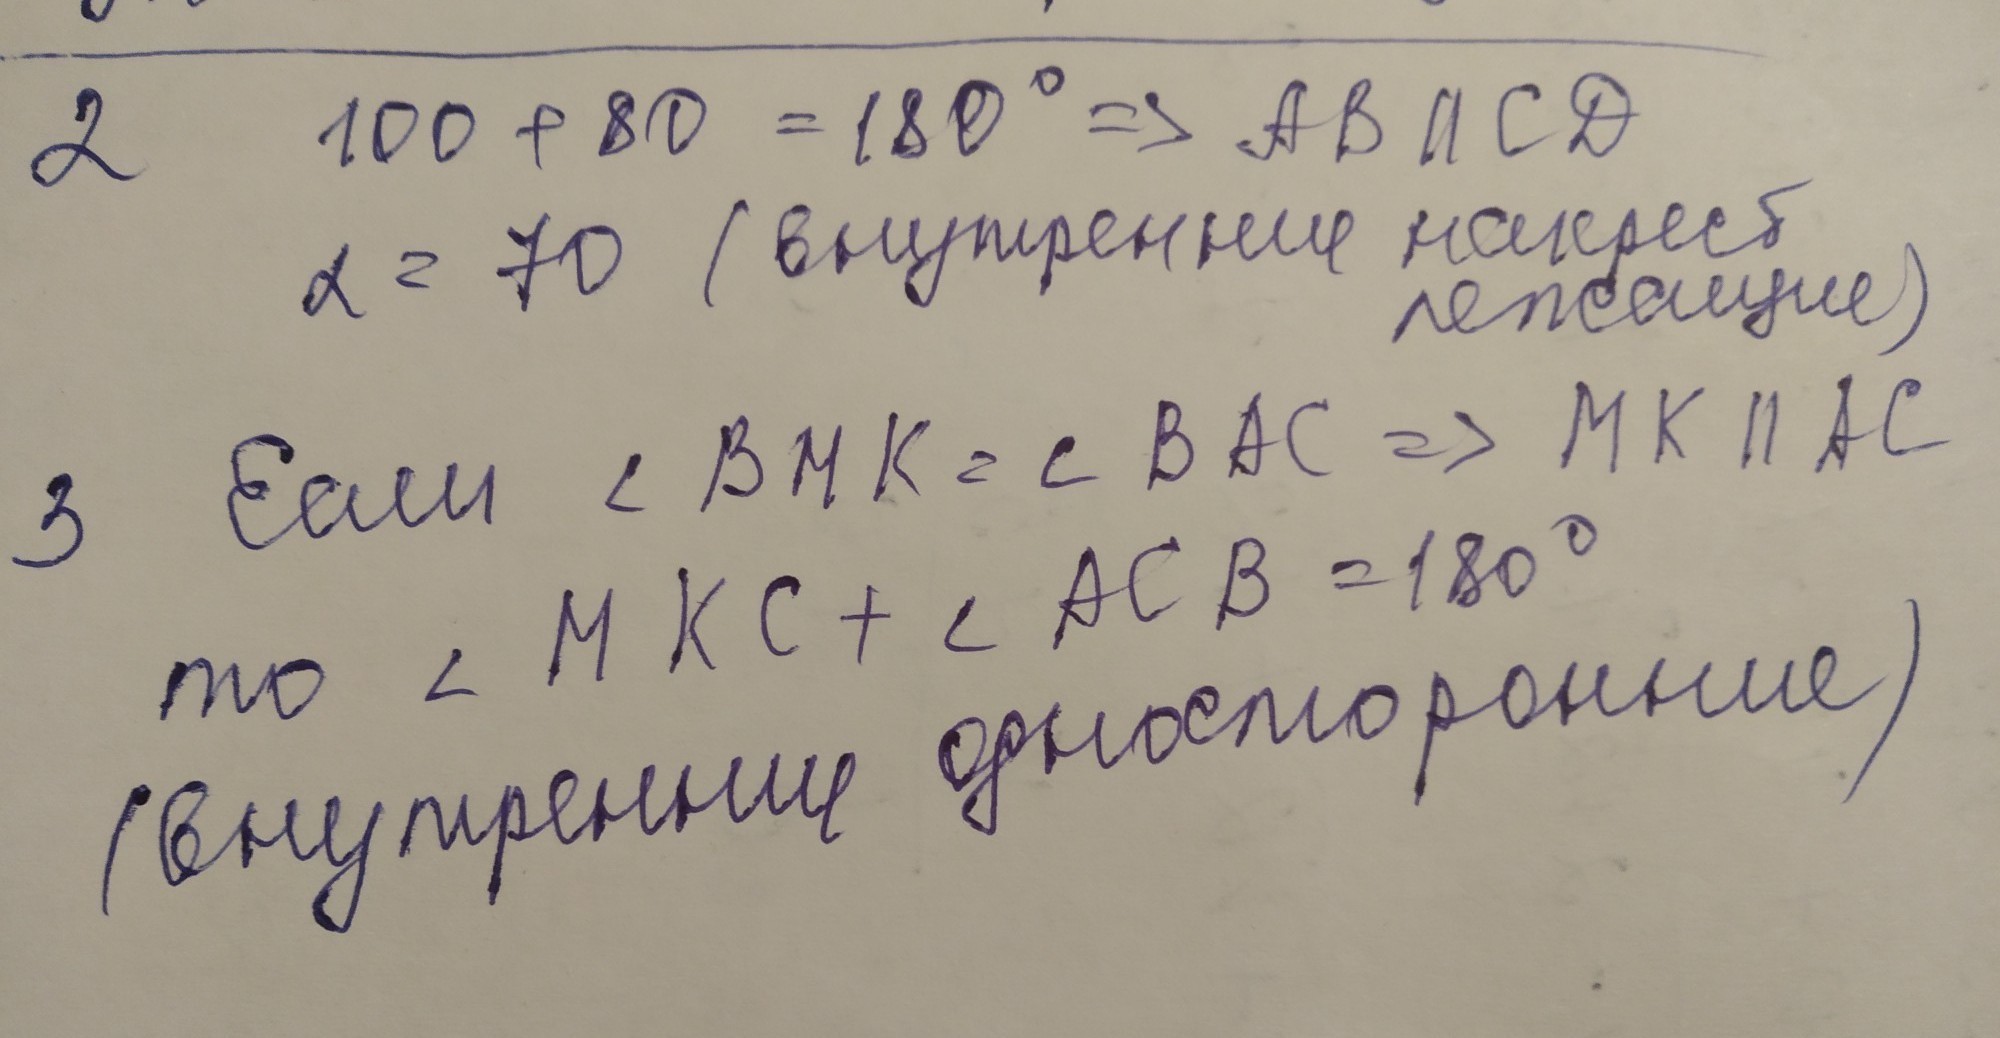 2 100 + 80 = 180° => AB || CD
α = 70 (внутренние накрест
лежащие)
3 Если < BMK = < BAC => MK || AC
то < MKC + < ACB = 180°
(внутренние односторонние)